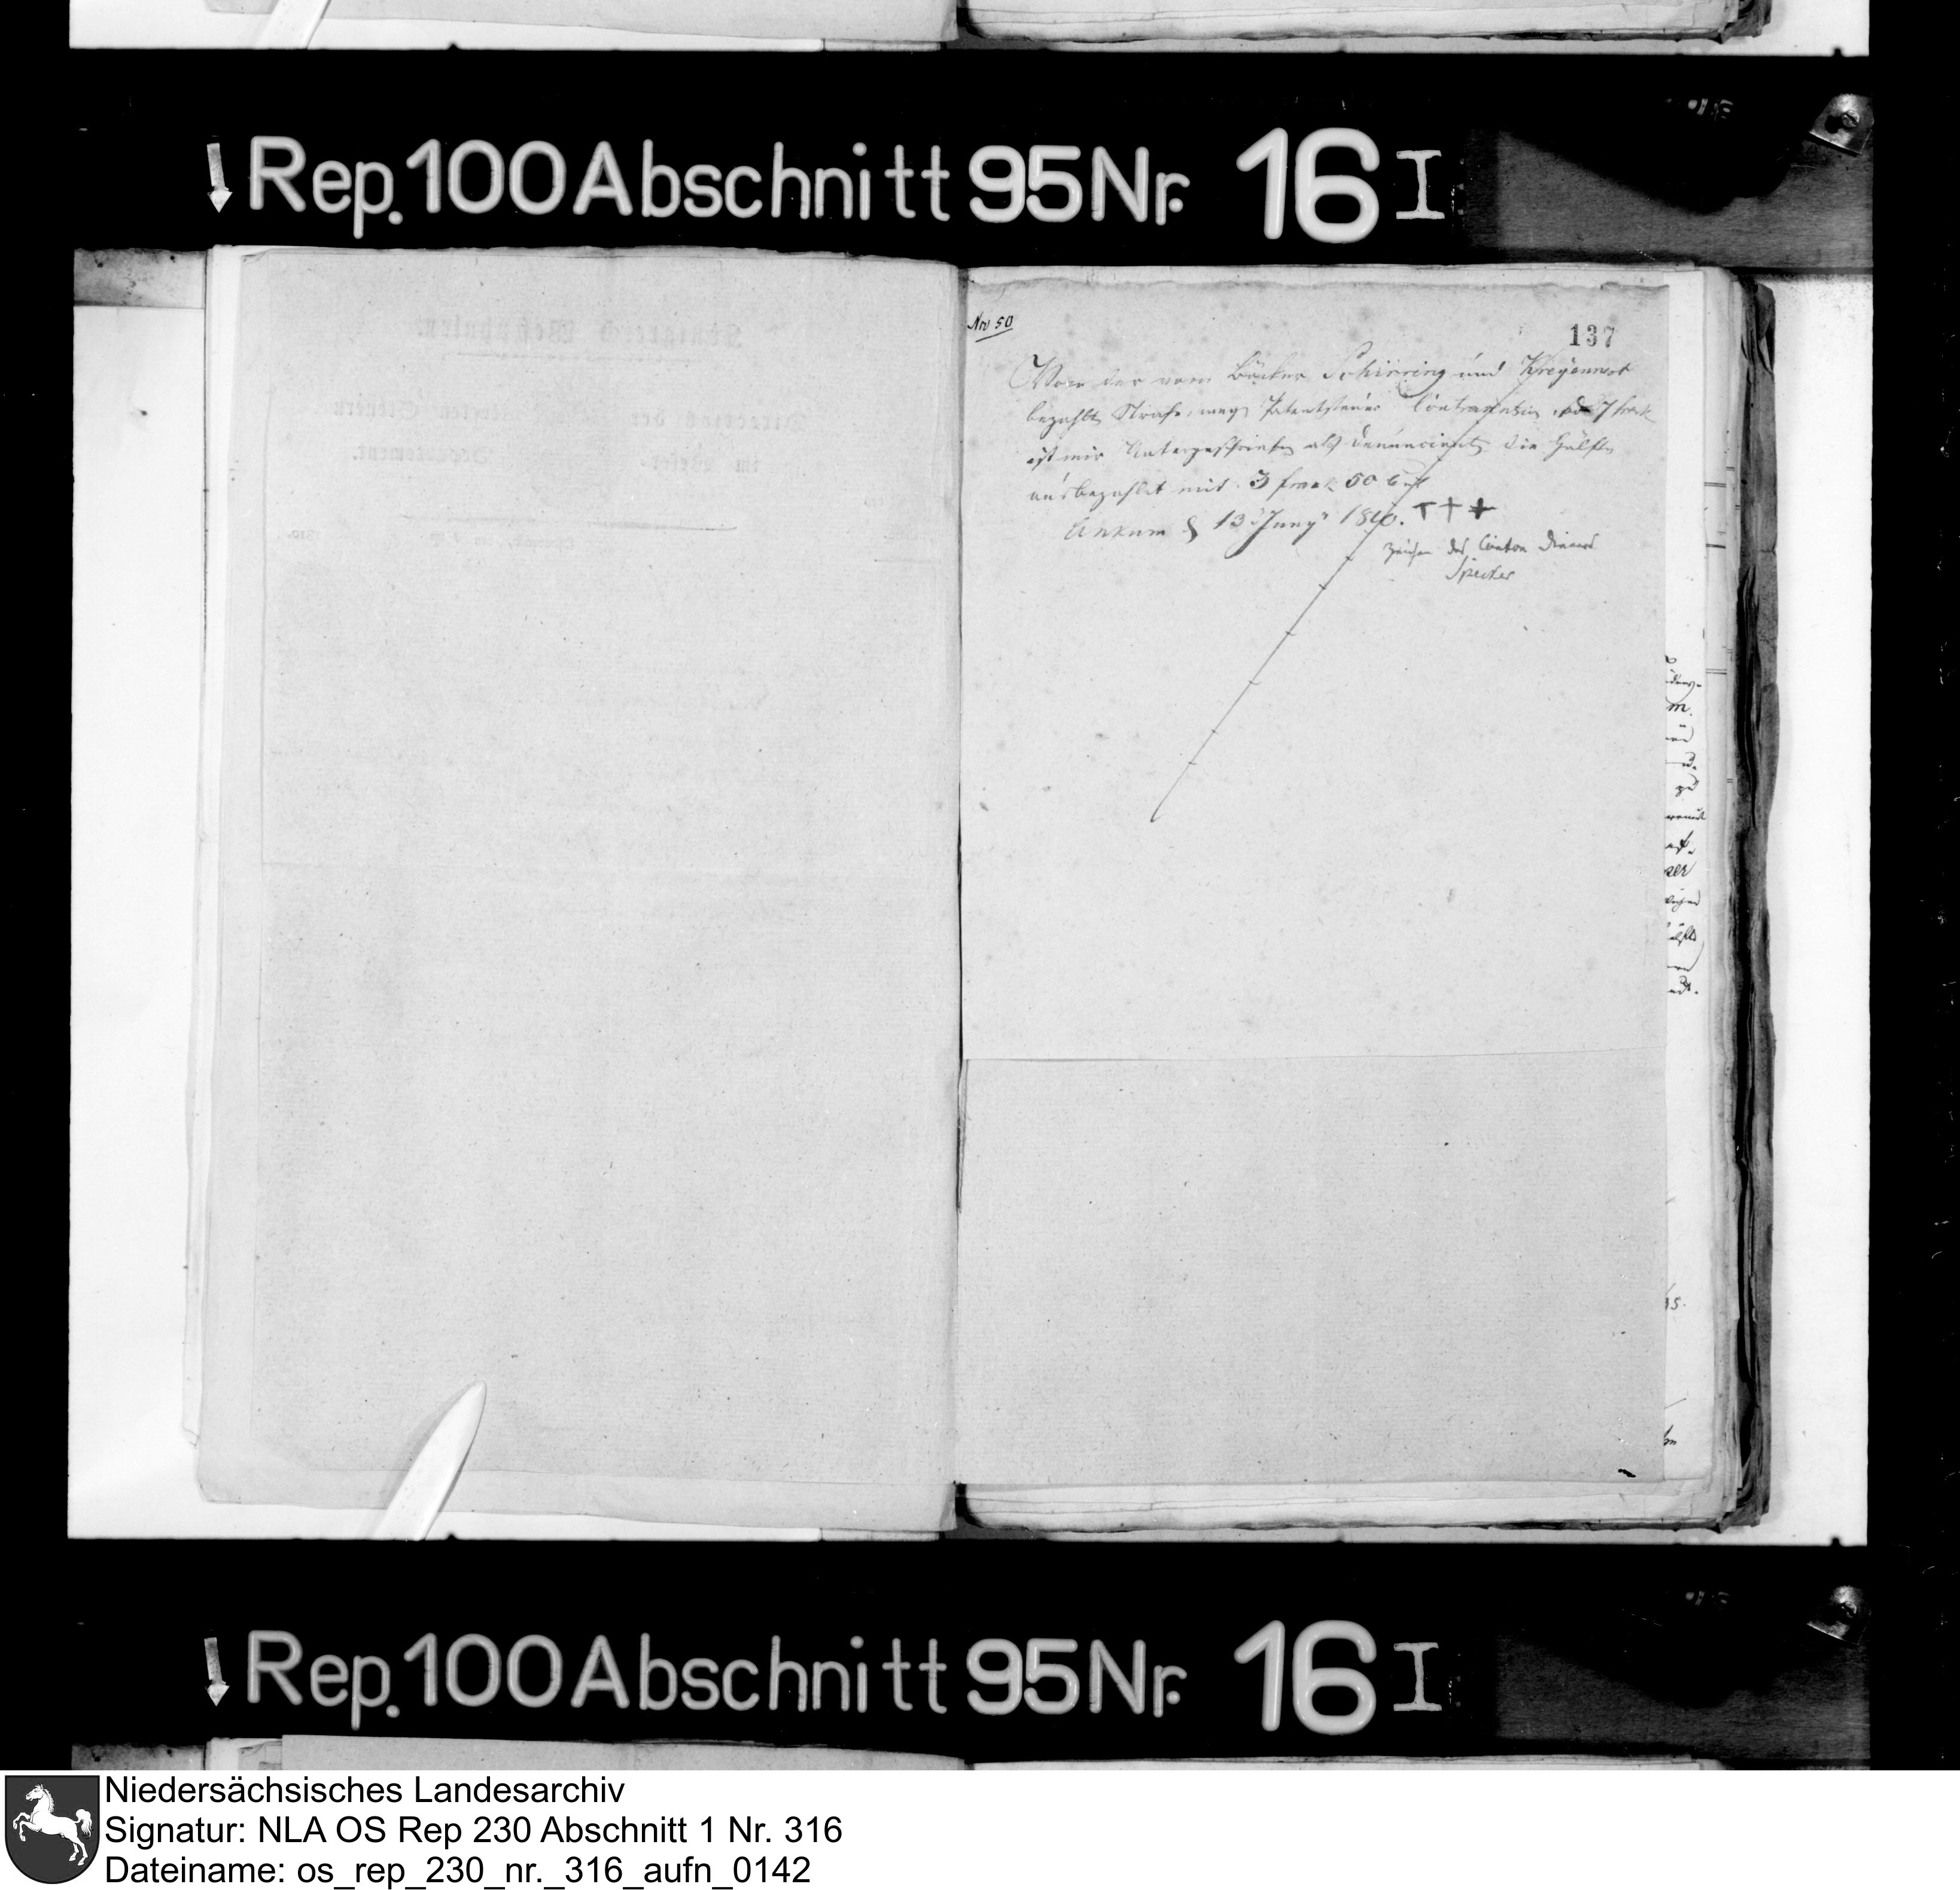 Rep. 100 Abschnitt 95 Nr. 16 I
No 50
137
Von der vom Bäcker Schirring und Kreyenort
bezahlte Strafe, weg. Patentsteuer Contravention, ad 7 frank
ist mir Unterzeichneten als Denunciant die Hälfte
ausbezahlet mit 3 frank 50 Cent
Ankum d 13 Juny 1810. +++
Zeichen des Canton Dieners
Specker
Königreich Westphalen.
Direction der direkten Steuern
im Weser- Departement.
Rep. 100 Abschnitt 95 Nr. 16 I
Niedersächsisches Landesarchiv
Signatur: NLA OS Rep 230 Abschnitt 1 Nr. 316
Dateiname: os_rep_230_nr._316_aufn_0142